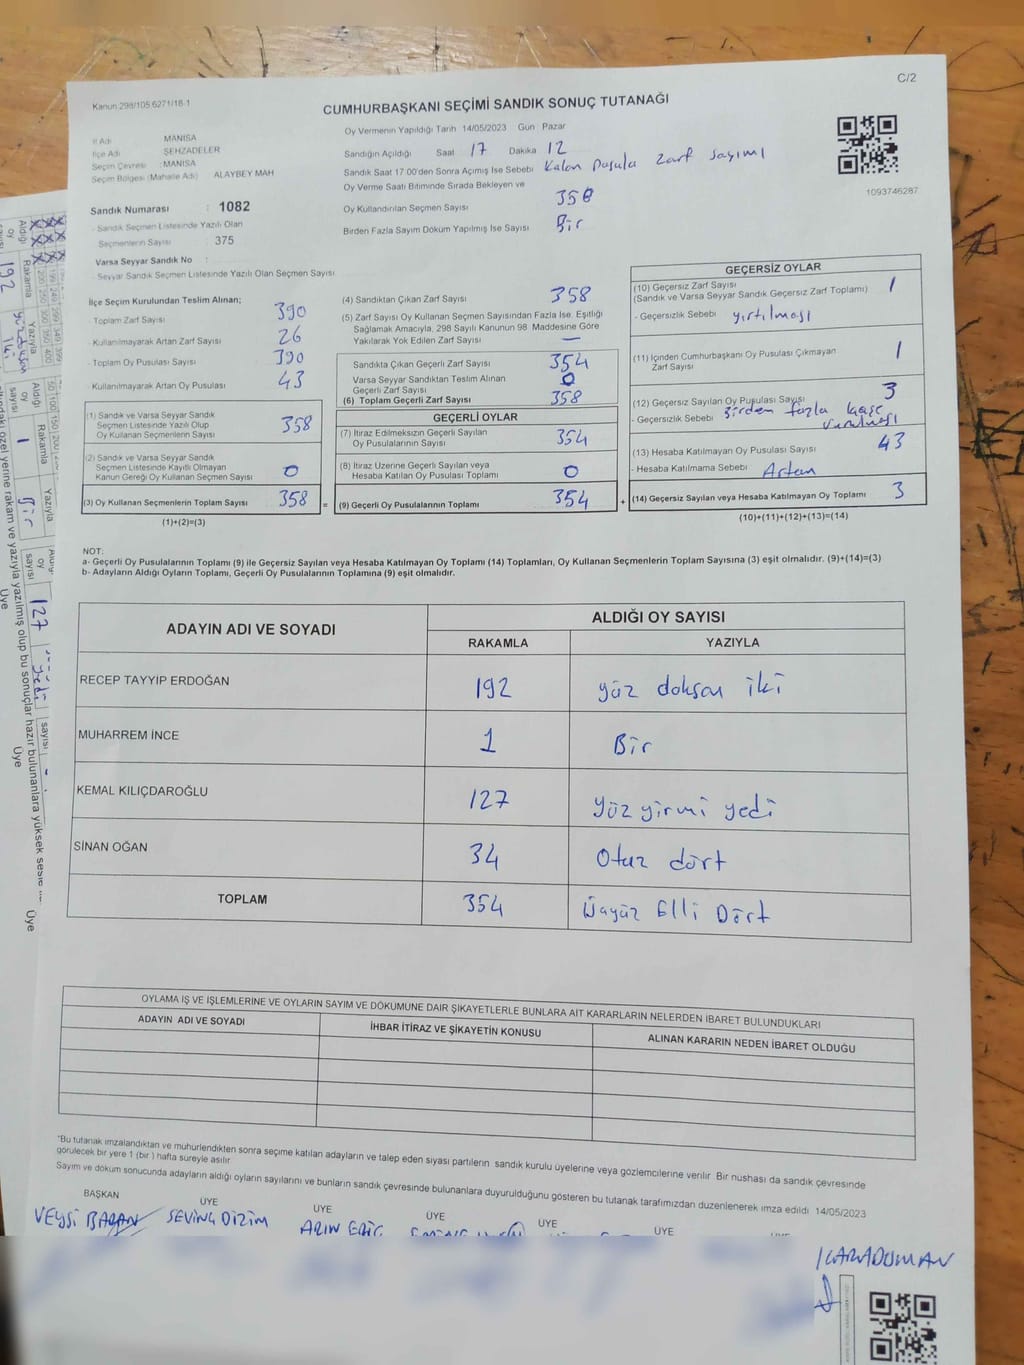 C/2
Kanun 298/105 6271/18-1
CUMHURBAŞKANI SEÇİMİ SANDIK SONUÇ TUTANAĞI
İl Adı : MANİSA
İlçe Adı : ŞEHZADELER
Seçim Çevresi : MANİSA
Seçim Bölgesi (Mahalle Adı) : ALAYBEY MAH
Sandık Numarası : 1082
- Sandık Seçmen Listesinde Yazılı Olan
Seçmenlerin Sayısı : 375
Varsa Seyyar Sandık No :
- Seyyar Sandık Seçmen Listesinde Yazılı Olan Seçmen Sayısı
Oy Vermenin Yapıldığı Tarih 14/05/2023 Gün : Pazar
Sandığın Açıldığı Saat 17 Dakika 12
Sandık Saat 17:00'den Sonra Açılmış İse Sebebi Kalan Pusula Zarf Sayımı
Oy Verme Saati Bitiminde Sırada Bekleyen ve
Oy Kullandırılan Seçmen Sayısı 358
Birden Fazla Sayım Döküm Yapılmış İse Sayısı Bir
1093746287
İlçe Seçim Kurulundan Teslim Alınan;
- Toplam Zarf Sayısı 390
- Kullanılmayarak Artan Zarf Sayısı 26
- Toplam Oy Pusulası Sayısı 390
- Kullanılmayarak Artan Oy Pusulası 43
(1) Sandık ve Varsa Seyyar Sandık
Seçmen Listesinde Yazılı Olup
Oy Kullanan Seçmenlerin Sayısı 358
(2) Sandık ve Varsa Seyyar Sandık
Seçmen Listesinde Kayıtlı Olmayan
Kanun Gereği Oy Kullanan Seçmen Sayısı 0
(3) Oy Kullanan Seçmenlerin Toplam Sayısı 358 =
(1)+(2)=(3)
(4) Sandıktan Çıkan Zarf Sayısı 358
(5) Zarf Sayısı Oy Kullanan Seçmen Sayısından Fazla İse, Eşitliği
Sağlamak Amacıyla, 298 Sayılı Kanunun 98. Maddesine Göre
Yakılarak Yok Edilen Zarf Sayısı —
Sandıkta Çıkan Geçerli Zarf Sayısı 354
Varsa Seyyar Sandıktan Teslim Alınan
Geçerli Zarf Sayısı 0
(6) Toplam Geçerli Zarf Sayısı 358
GEÇERLİ OYLAR
(7) İtiraz Edilmeksizin Geçerli Sayılan
Oy Pusulalarının Sayısı 354
(8) İtiraz Üzerine Geçerli Sayılan veya
Hesaba Katılan Oy Pusulası Toplamı 0
(9) Geçerli Oy Pusulalarının Toplamı 354 +
GEÇERSİZ OYLAR
(10) Geçersiz Zarf Sayısı
(Sandık ve Varsa Seyyar Sandık Geçersiz Zarf Toplamı) 1
- Geçersizlik Sebebi yırtılması
(11) İçinden Cumhurbaşkanı Oy Pusulası Çıkmayan
Zarf Sayısı 1
(12) Geçersiz Sayılan Oy Pusulası Sayısı 3
- Geçersizlik Sebebi Birden fazla kaşe
vurulması
(13) Hesaba Katılmayan Oy Pusulası Sayısı 43
- Hesaba Katılmama Sebebi Artan
(14) Geçersiz Sayılan veya Hesaba Katılmayan Oy Toplamı 3
(10)+(11)+(12)+(13)=(14)
NOT:
a- Geçerli Oy Pusulalarının Toplamı (9) ile Geçersiz Sayılan veya Hesaba Katılmayan Oy Toplamı (14) Toplamları, Oy Kullanan Seçmenlerin Toplam Sayısına (3) eşit olmalıdır. (9)+(14)=(3)
b- Adayların Aldığı Oyların Toplamı, Geçerli Oy Pusulalarının Toplamına (9) eşit olmalıdır.
ADAYIN ADI VE SOYADI
ALDIĞI OY SAYISI
RAKAMLA YAZIYLA
RECEP TAYYİP ERDOĞAN 192 yüz doksan iki
MUHARREM İNCE 1 Bir
KEMAL KILIÇDAROĞLU 127 yüz yirmi yedi
SİNAN OĞAN 34 Otuz dört
TOPLAM 354 Üçyüz Elli Dört
OYLAMA İŞ VE İŞLEMLERİNE VE OYLARIN SAYIM VE DÖKÜMÜNE DAİR ŞİKAYETLERLE BUNLARA AİT KARARLARIN NELERDEN İBARET BULUNDUKLARI
ADAYIN ADI VE SOYADI İHBAR İTİRAZ VE ŞİKAYETİN KONUSU ALINAN KARARIN NEDEN İBARET OLDUĞU
*Bu tutanak imzalandıktan ve mühürlendikten sonra seçime katılan adayların ve talep eden siyasi partilerin sandık kurulu üyelerine veya gözlemcilerine verilir. Bir nüshası da sandık çevresinde
görülecek bir yere 1 (bir) hafta süreyle asılır.
Sayım ve döküm sonucunda adayların aldığı oyların sayılarını ve bunların sandık çevresinde bulunanlara duyurulduğunu gösteren bu tutanak tarafımızdan düzenlenerek imza edildi 14/05/2023
BAŞKAN ÜYE ÜYE ÜYE ÜYE ÜYE
VEYSİ BARAN SEVİNÇ DİZİM
KARADUMAN